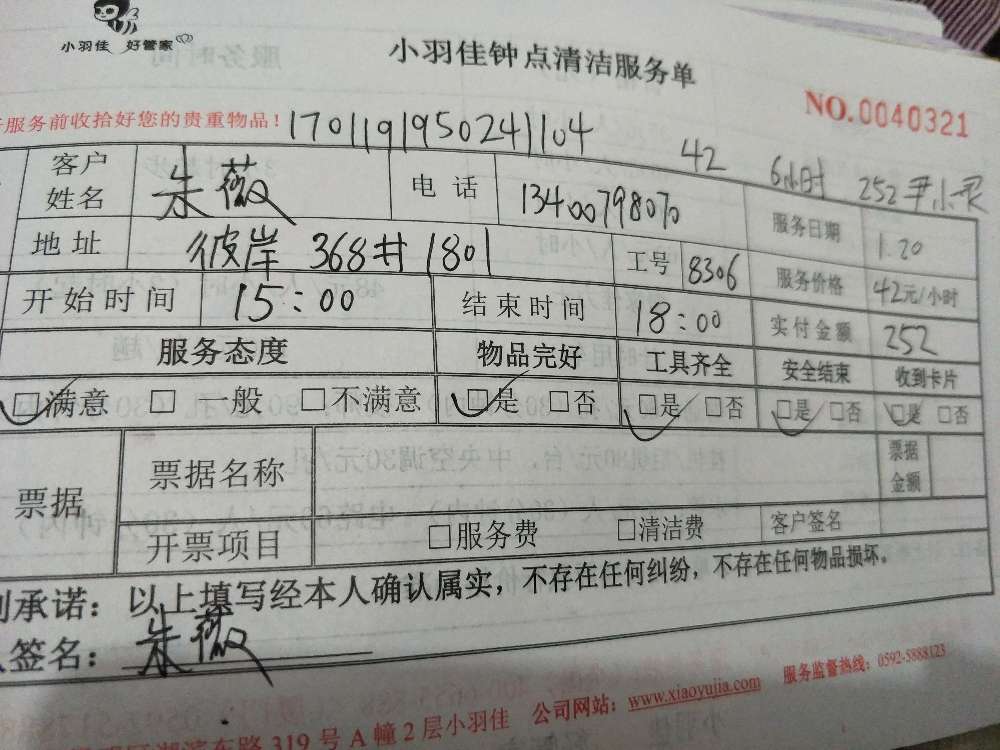 小羽佳 好管家
小羽佳钟点清洁服务单
NO.0040321
服务前收拾好您的贵重物品！ 1701191950241104
42 6小时 252
客户姓名 朱薇 电话 13400798070 服务日期 1.20
地址 彼岸 368# 1801 工号 8306 服务价格 42元/小时
开始时间 15:00 结束时间 18:00 实付金额 252
服务态度 物品完好 工具齐全 安全结束 收到卡片
☑满意 □一般 □不满意 ☑是 □否 ☑是 □否 ☑是 □否 ☑是 □否
票据 票据名称 票据金额
开票项目 □服务费 □清洁费 客户签名
承诺：以上填写经本人确认属实，不存在任何纠纷，不存在任何物品损坏。
签名：朱薇
服务监督热线：0592-5888123
东路319号A幢2层小羽佳 公司网站：www.xiaoyujia.com